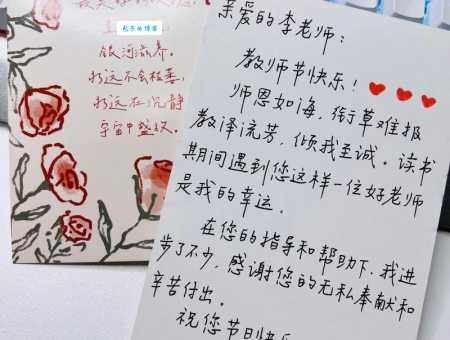 包子的博客
银河滋养。
永远不会枯萎,
永远在沉静
宇宙中盛放。
亲爱的李老师:
教师节快乐!
师恩如海,衔草难报
教泽流芳,倾我至诚。读书
期间遇到您这样一位好老师
是我的幸运。
在您的指导和帮助下,我进
步了不少,感谢您的无私奉献和
辛苦付出。
祝您节日快乐